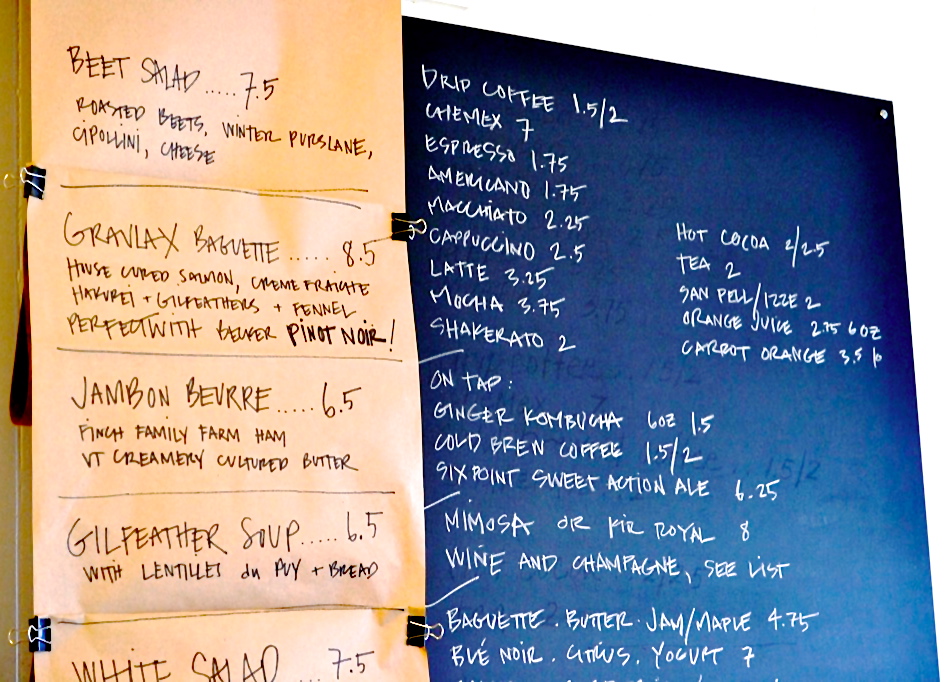 BEET SALAD ..... 7.5
ROASTED BEETS, WINTER PURSLANE,
CIPOLLINI, CHEESE
GRAVLAX BAGUETTE ..... 8.5
HOUSE CURED SALMON, CREME FRAICHE
HAKUREI + GILFEATHERS + FENNEL
PERFECT WITH BECKER PINOT NOIR!
JAMBON BEURRE ..... 6.5
FINCH FAMILY FARM HAM
VT CREAMERY CULTURED BUTTER
GILFEATHER SOUP ..... 6.5
WITH LENTILLES du PUY + BREAD
WHITE SALAD 7.5
DRIP COFFEE 1.5/2
CHEMEX 7
ESPRESSO 1.75
AMERICANO 1.75
MACCHIATO 2.25
CAPPUCCINO 2.5
LATTE 3.25
MOCHA 3.75
SHAKERATO 2
HOT COCOA 2/2.5
TEA 2
SAN PELL/IZZE 2
ORANGE JUICE 2.75 6 OZ
CARROT ORANGE 3.5
ON TAP:
GINGER KOMBUCHA 6OZ 1.5
COLD BREW COFFEE 1.5/2
SIXPOINT SWEET ACTION ALE 6.25
MIMOSA OR KIR ROYAL 8
WINE AND CHAMPAGNE, SEE LIST
BAGUETTE . BUTTER . JAM/MAPLE 4.75
BLÉ NOIR . CITRUS . YOGURT 7